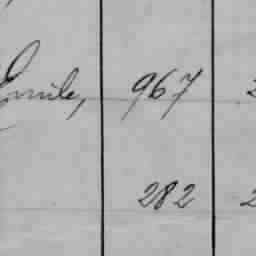 Emile, 967 2
282 2